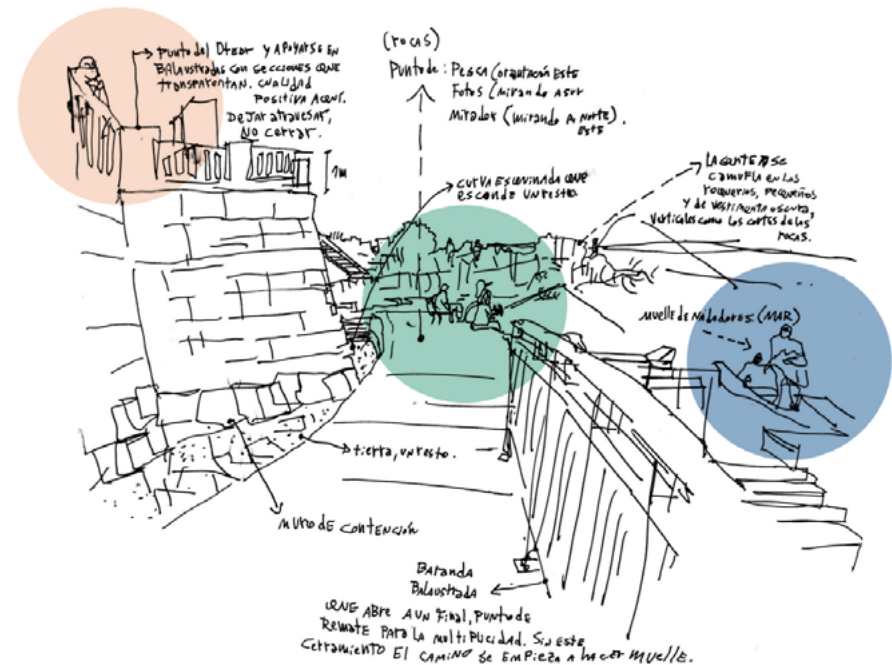 Punto del Otear y APoyarse en
BALaustradas con secciones que
transparentan. cualidad
Positiva Acont.
Dejar atravesar,
No cerrar.
1M
(rocas)
Punto de: Pesca (orientación Este
Fotos (mirando A sur
Mirador (mirando A Norte).
Este
curva Esquinada que
esconde un resto
LA gente se
camufla en los
roqueríos, pequeños
y de vestimenta oscura,
verticales como los cortes de las
rocas.
Muelle de Nadadores (MAR)
tierra, un resto.
muro de contención
Baranda
Balaustrada
que Abre A un Final, Punto de
Remate Para la multiplicidad. Sin este
Cerramiento El camino se Empieza a hacer muelle.